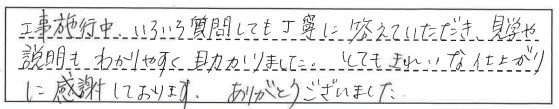 工事施行中、いろいろ質問しても丁寧に答えていただき、見学や
説明もわかりやすく助かりました。とてもきれいな仕上がり
に感謝しております。ありがとうございました。